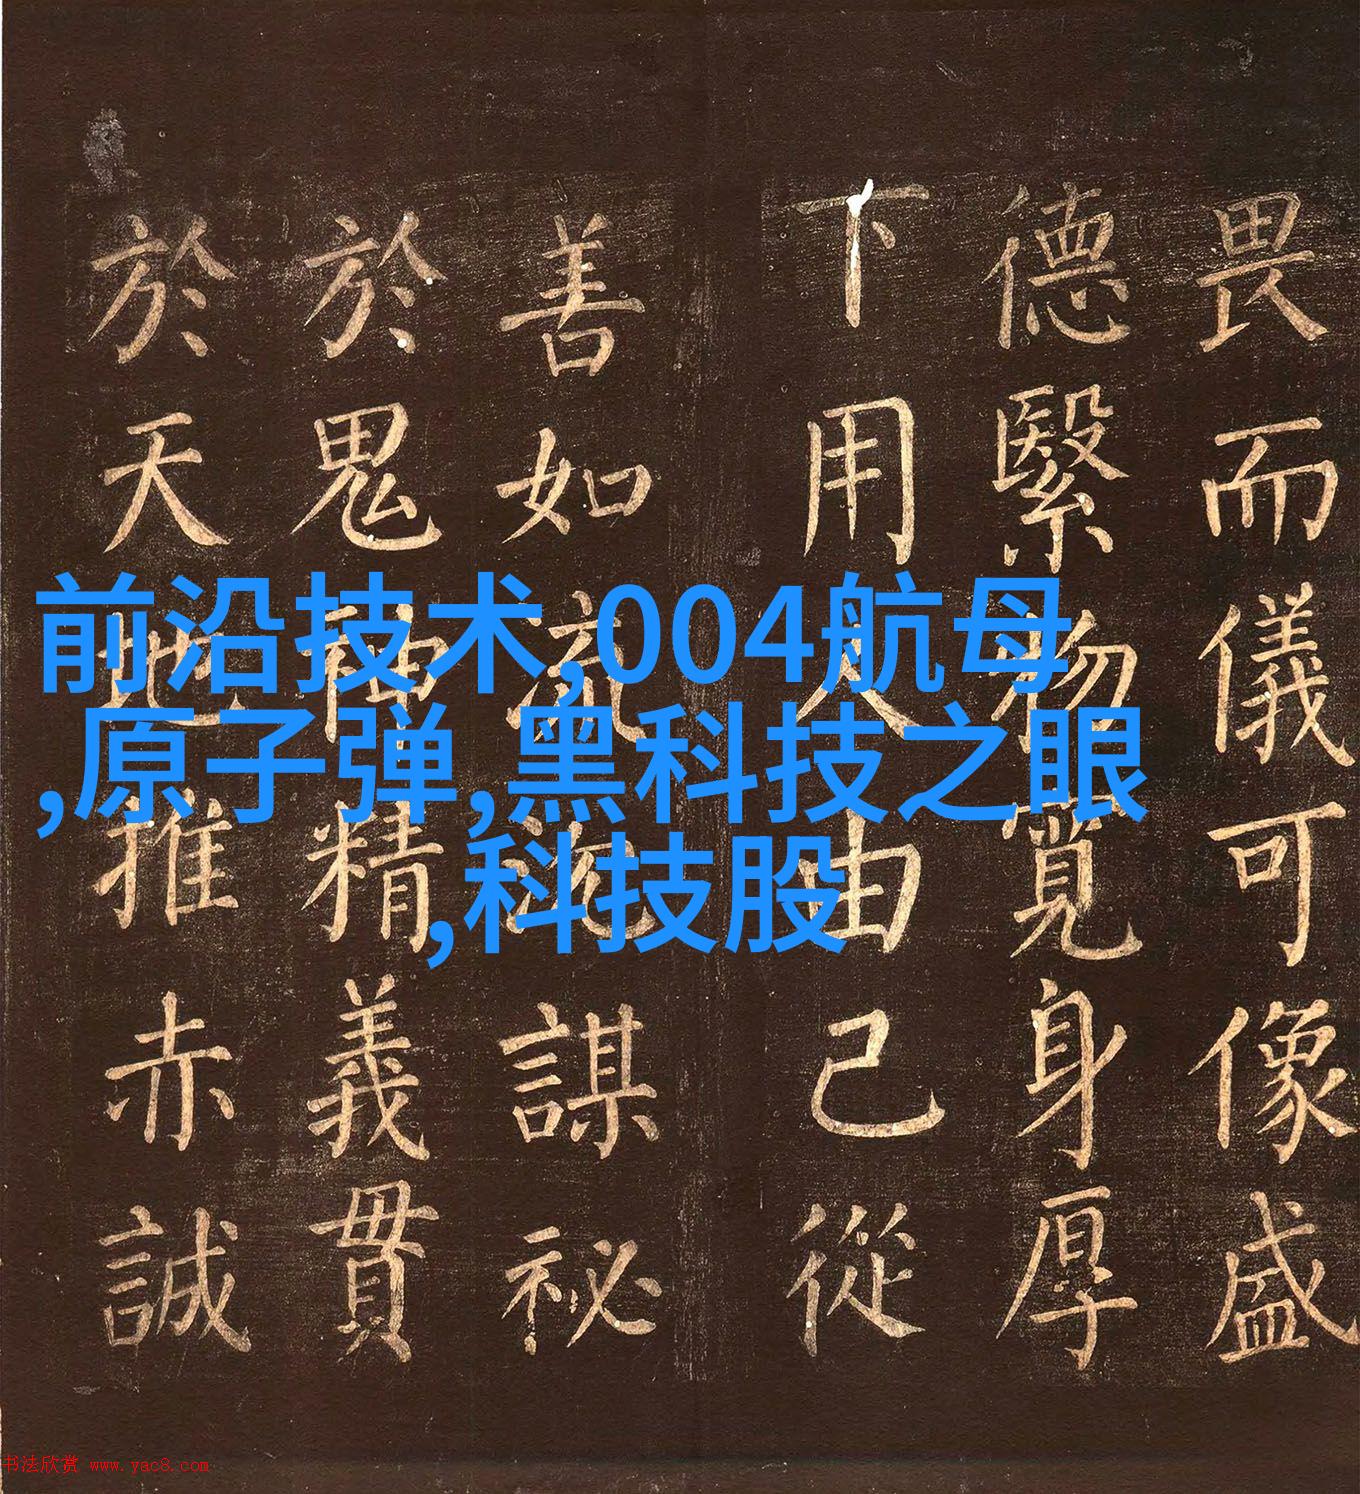 前沿技术,004航母
,原子弹,黑科技之眼
,科技股
畏而儀可像盛
德繄物寬身厚
下用人由己從
善如流謀祕
於鬼神精義貫
於天地推赤誠
书法欣赏 www.yac8.com